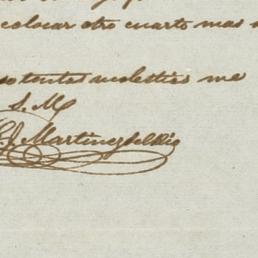 colocar otro cuarto mas
tantas molestias me
S. M.
J. Martinez del Rio